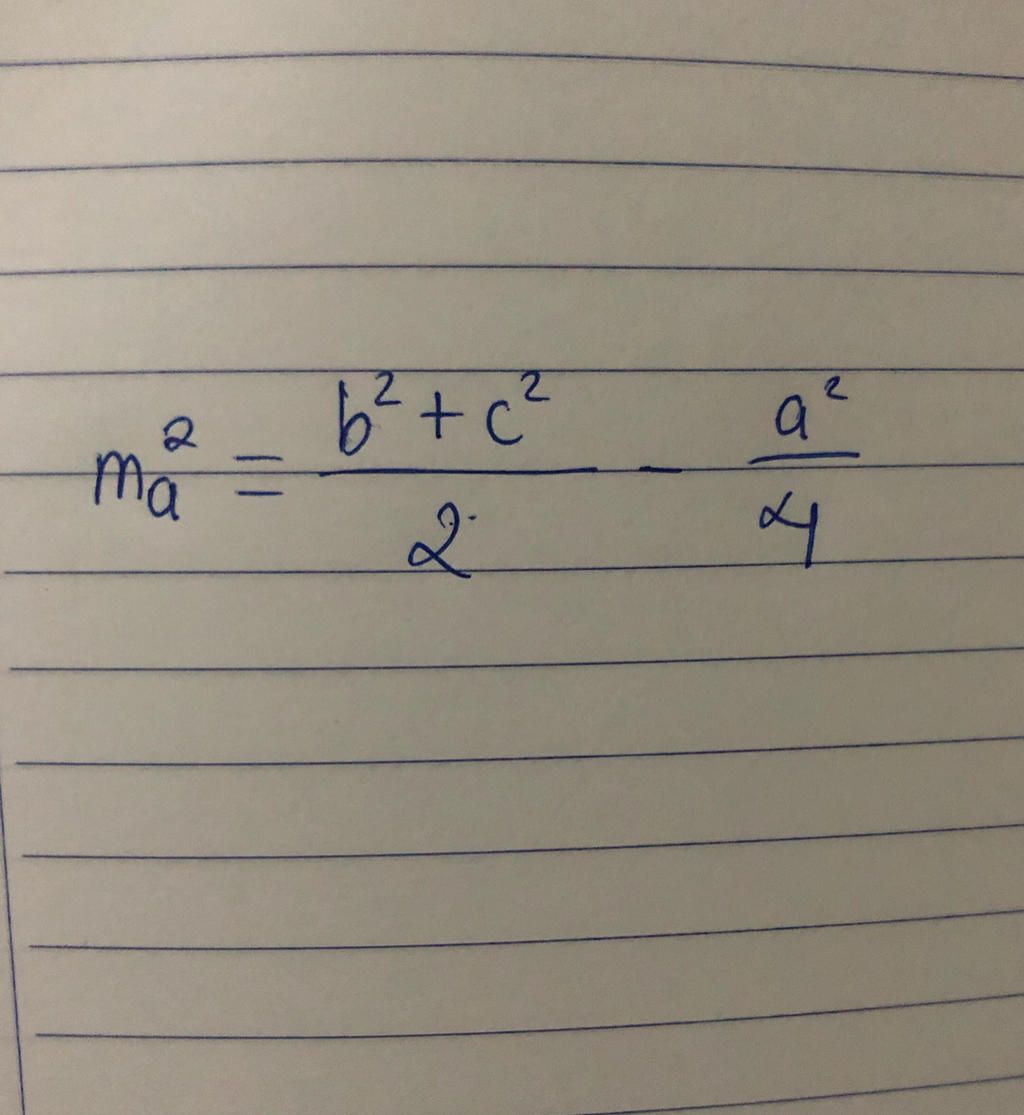 m_a^2 = \frac{b^2 + c^2}{2} - \frac{a^2}{4}